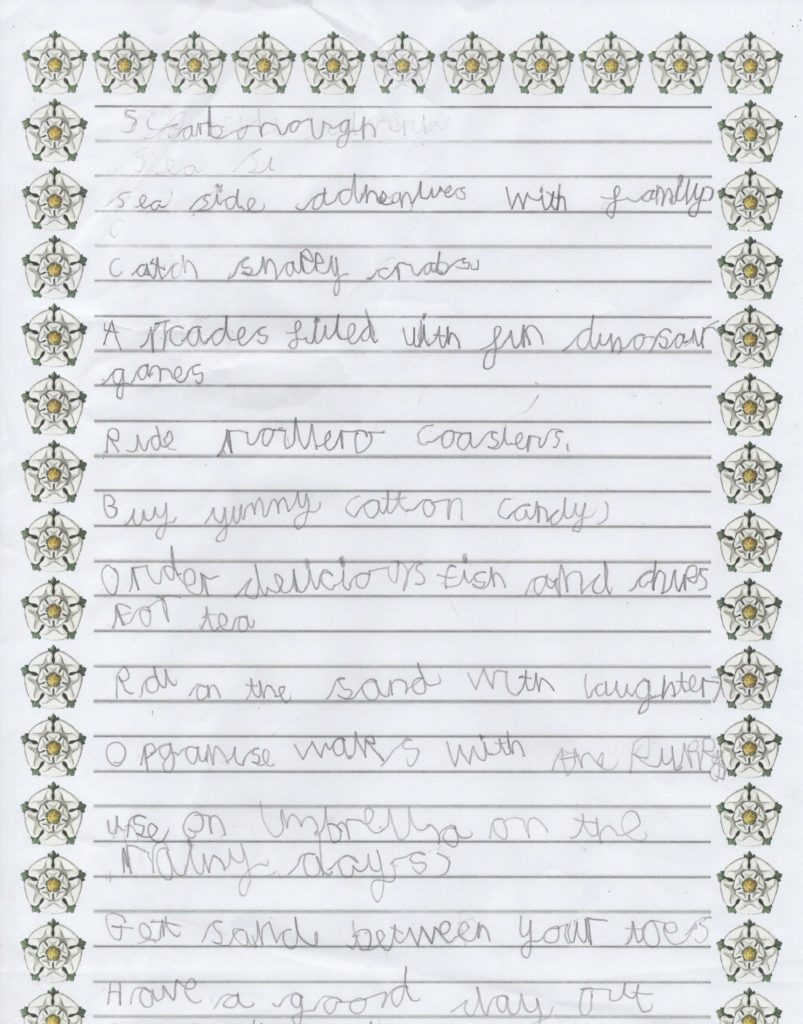 Scarborough
Sea side with family
Catch snappy crabs
Arcades filled with fun dinosaur
games
Ride coasters.
Buy yummy catton candy
Order delicious fish and chips
For tea
on the sand with laughter
Organise walks with the puppy
use an umbrella on the
rainy days
Get sand between your toes
Have a good day out